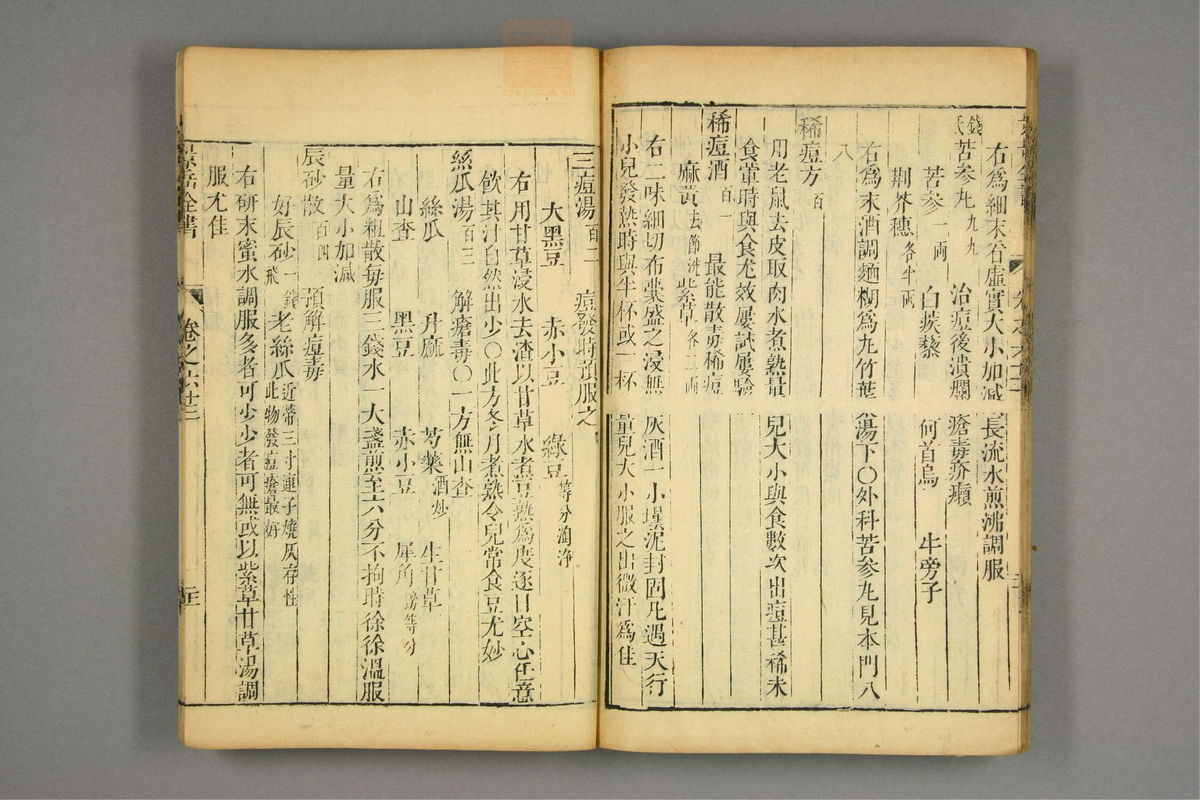 右爲細末看虛實大小加減長流水煎沸調服
錢氏苦參丸九九 治痘後潰爛瘡毒疥癩
苦參一兩 白蒺藜 何首烏 牛旁子
荆芥穗各半兩
右爲末酒調麵糊爲丸竹葉湯下○外科苦參丸見本門八
八
稀痘方百
用老鼠去皮取肉水煮熟量兒大小與食數次出痘甚稀未
食葷時與食尤效屢試屢驗
稀痘酒百一 最能散毒稀痘
麻黃去節洗 紫草各二兩
右二味細切布囊盛之浸無灰酒一小壜泥封固凡遇天行
小兒發熱時與半杯或一杯量兒大小服之出微汗爲佳
三痘湯百二 痘發時預服之
大黑豆 赤小豆 綠豆等分淘淨
右用甘草浸水去渣以甘草水煮豆熟爲度逐日空心任意
飲其汁自然出少○此方冬月煮熟令兒常食豆尤妙
絲瓜湯百三 解瘡毒○一方無山查
絲瓜 升麻 芍藥酒炒 生甘草
山查 黑豆 赤小豆 犀角鎊等分
右爲粗散每服三錢水一大盞煎至六分不拘時徐徐溫服
量大小加減
辰砂散百四 預解痘毒
好辰砂一錢飛 老絲瓜近蒂三寸連子燒灰存性此物發痘瘡最好
右研末蜜水調服多者可少少者可無或以紫草甘草湯調
服尤佳
景岳全書 卷之六十三